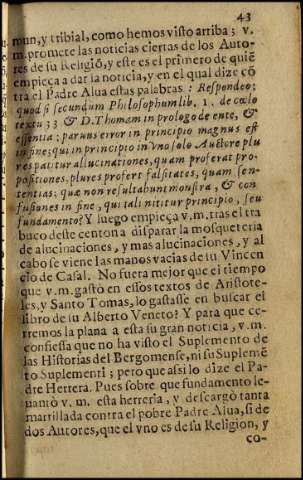 43
mun, y tribial, como hemos visto arriba; v.
m. promete las noticias ciertas de los Auto-
res de su Religiõ, y este es el primero de quiẽ
empieça a dar la noticia, y en el qual dize cõ
tra el Padre Alua estas palabras: Respondeo;
quod si secundum Philosophum lib. 1. de cœlo
textu 33 & D. Thomam in prologo de ente, &
essentia: paruus error in principio magnus est
in fine; qui in principio in vno solo Auctore plu
res patitur allucinationes, quam proferat pro-
positiones. plures profert falsitates, quam sen-
tentias: quæ non resultabunt monstra, & con
fusiones in fine, qui tali nititur principio, seu
fundamento? Y luego empieça v.m. tras el tra
buco deste centon a disparar la mosqueteria
de alucinaciones, y mas alucinaciones, y al
cabo se viene las manos vacias de su Vincen
cio de Casal. No fuera mejor que el tiempo
que v.m. gastò en essos textos de Aristote-
les, y Santo Tomas, lo gastasse en buscar el
libro de su Alberto Veneto? Y para que ce-
rremos la plana a esta su gran noticia, v.m.
confiessa que no ha visto el Suplemento de
las Historias del Bergomense, ni su Suplemẽ
to Suplementi; pero que assi lo dize el Pa-
dre Herrera. Pues sobre que fundamento le-
uantò v. m. esta herreria, y descargò tanta
martillada contra el pobre Padre Alua, si de
dos Autores, que el vno es de su Religion, y
co-